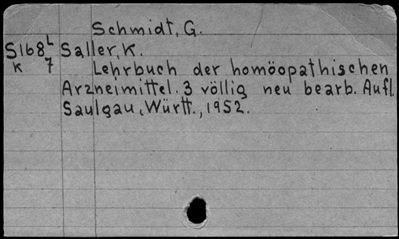 Schmidt, G.
S168L Saller, K.
K 7 Lehrbuch der homöopathischen
Arzneimittel. 3 völlig neu bearb. Aufl
Saulgau, Württ., 1952.